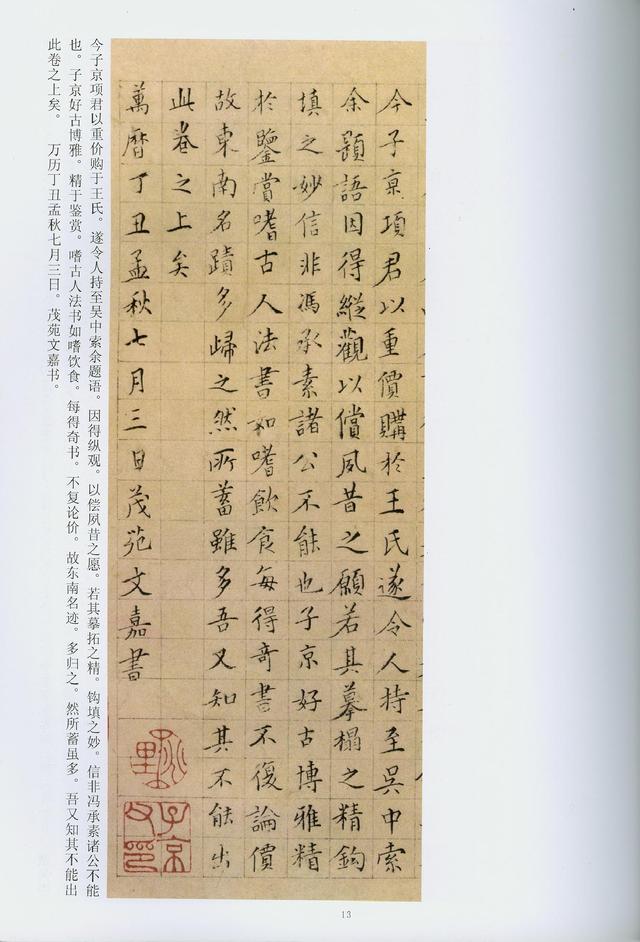 今子京項君以重價購於王氏遂令人持至吳中索
余題語因得縱觀以償夙昔之願若其摹榻之精鈎
填之妙信非馮承素諸公不能也子京好古博雅精
於鑒賞嗜古人法書如嗜飲食每得奇書不復論價
故東南名蹟多歸之然所蓄雖多吾又知其不能出
此卷之上矣
萬曆丁丑孟秋七月三日茂苑文嘉書
子京父印
今子京项君以重价购于王氏。遂令人持至吴中索余题语。因得纵观。以偿夙昔之愿。若其摹拓之精。钩填之妙。信非冯承素诸公不能
也。子京好古博雅。精于鉴赏。嗜古人法书如嗜饮食。每得奇书。不复论价。故东南名迹。多归之。然所蓄虽多。吾又知其不能出
此卷之上矣。 万历丁丑孟秋七月三日。茂苑文嘉书。
13